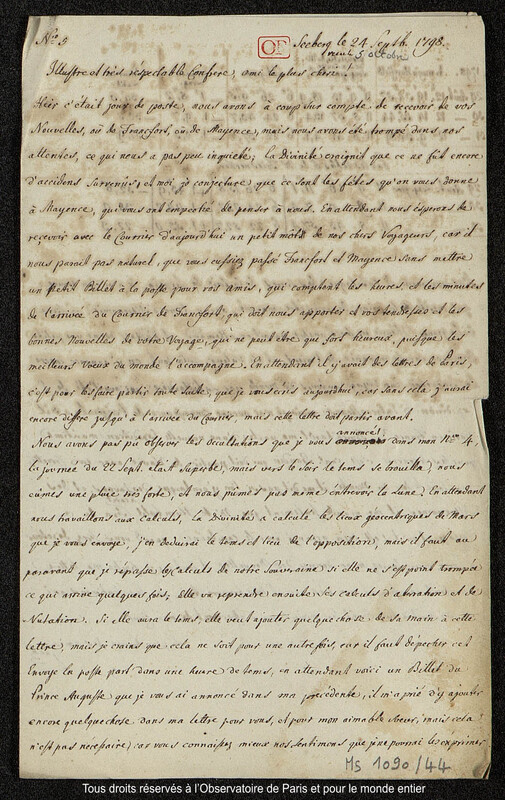 N.º 5 OP Seeberg le 24 Septb. 1798.
reçu le 5 octobre
Illustre et très réspectable Confrere, ami le plus cheri.
Hier c'était jour de poste, nous avons à coup sur compté de recevoir de vos
Nouvelles, où de Francfort, où de Mayence, mais nous avons été trompé dans nos
attentes, ce qui nous a pas peu inquieté; la Divinité craignit que ce ne fut encore
d'accidens survenus, et moi je conjecture que ce sont les fêtes qu'on vous donne
à Mayence, qui vous ont empeché de penser à nous. En attendant nous ésperons de
reçevoir avec le Courrier d'aujourd'hui un petit môt de nos chers Voyageurs, car il
nous parait pas naturel, que vous eussiez passé Francfort et Mayence sans mettre
un Petit Billet à la poste pour vos amis, qui comptent les heures et les minutes
de l'arrivée du Courier de Francfort, qui doit nous apporter et vos tendresses et les
bonnes Nouvelles de votre Voyage, qui ne peut être que fort heureux, puisque les
meilleurs Voeux du monde l'accompagne. En attendent il y avait des lettres de Paris,
c'est pour les faire partir toute suite, que je vous ecris aujourd'hui, car sans cela j'aurai
encore differé jusqu'à l'arrivée du Courier, mais cette lettre doit partir avant.
Nous avons pas pû observer les occultations que je vous annoncé dans mon N.ro 4,
la journée du 22 Sept. etait superbe, mais vers le soir le tems se brouilla, nous
eumes une pluie très forte, et nous pûmes pas même entrevoir la Lune. En attendant
nous travaillons aux calculs, La Divinité a calculé les lieux géocentriques de Mars
que je vous envoye, j'en deduirai le tems et lieu de l'opposition, mais il faut au
paravant que je répasse les calculs de notre Souveraine si elle ne s'est point trompée
ce qui arrive quelques fois; Elle va reprendre ensuite ses calculs d'aberration et de
Nutation. Si elle aura le tems, elle veut ajouter quelque chose de sa main à cette
lettre, mais je crains que cela ne soit pour une autre fois, car il faut depecher cet
Envoye la poste part dans une heure de tems, en attendant voici un Billet du
Prince Auguste que je vous ai annoncé dans ma precédente, il m'a prié d'y ajouter
encore quelque chose dans ma lettre pour vous, et pour mon aimable soeur, mais cela
n'est pas necessaire, car vous connaissez mieux nos sentimens que je ne pourrai les exprimer
Ms 1090/44
Tous droits réservés à l'Observatoire de Paris et pour le monde entier